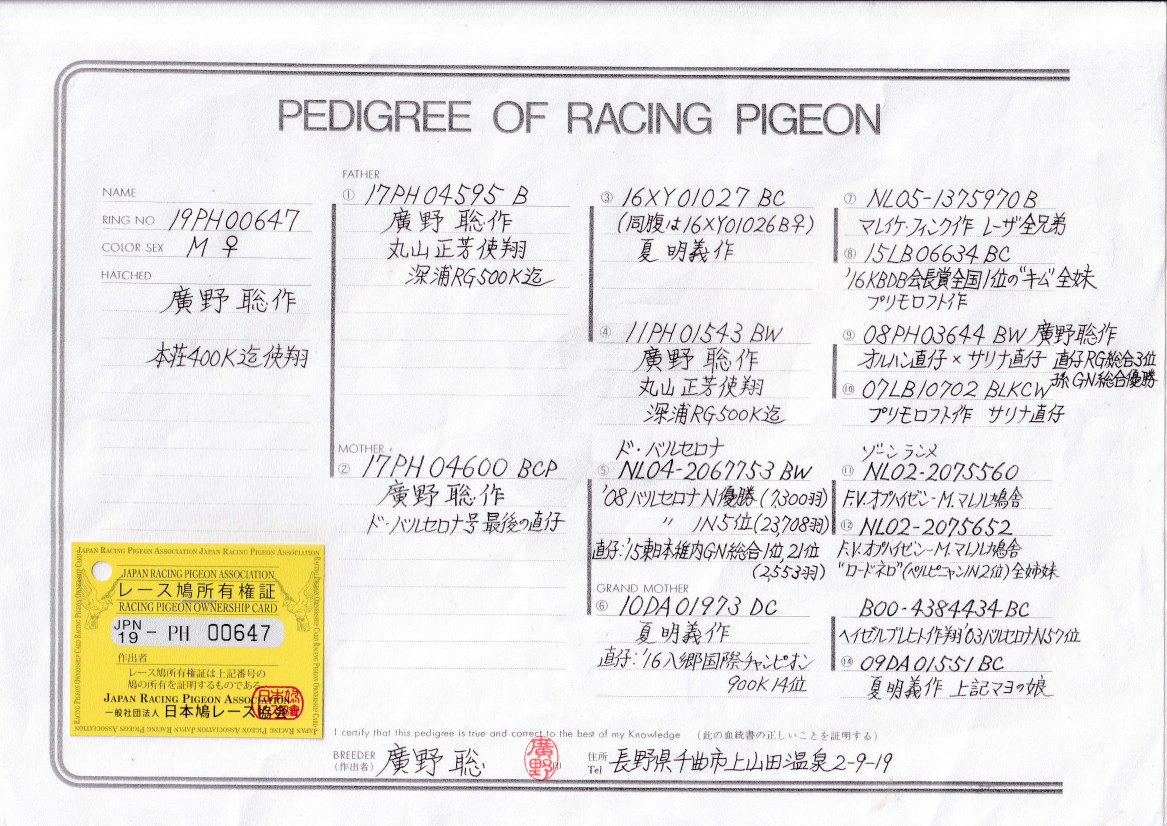 PEDIGREE OF RACING PIGEON
NAME
RING NO 19PH00647
COLOR SEX M ♀
HATCHED
廣野 聡作
本荘400K迄使翔
FATHER
① 17PH04595 B
廣野 聡作
丸山正芳使翔
深浦RG500K迄
MOTHER
② 17PH04600 BCP
廣野 聡作
ド・バルセロナ号最後の直仔
③ 16XY01027 BC
(同腹は16XY01026B♀)
夏 明義作
④ 11PH01543 BW
廣野 聡作
丸山正芳使翔
深浦RG500K迄
ド・バルセロナ
⑤ NL04-2067753 BW
'08バルセロナN優勝(7,300羽)
〃 IN5位(23,708羽)
直仔:'15東日本稚内GN総合1位,21位
(2,553羽)
GRAND MOTHER
⑥ 10DA01973 DC
夏 明義作
直仔:'16八郷国際チャンピオン
900K14位
⑦ NL05-1375970 B
マレイケ・フィンク作 レーザ全兄弟
⑧ 15LB06634 BC
'16KBDB会長賞全国1位の"キム"全妹
プリモロフト作
⑨ 08PH03644 BW 廣野聡作
オルハン直仔×サリナ直仔 直仔RG総合3位
孫GN総合優勝
⑩ 07LB10702 BLKCW
プリモロフト作 サリナ直仔
ゾーンランメ
⑪ NL02-2075560
F.V.オプハイゼン-M.マレル鳩舎
⑫ NL02-2075652
F.V.オプハイゼン-M.マレル鳩舎
"ロードネロ"(ペルピニャンIN2位)全姉妹
B00-4384434 BC
ヘイゼルブレヒト作翔'03バルセロナN57位
⑭ 09DA01551 BC
夏明義作 上記マヨの娘
JAPAN RACING PIGEON ASSOCIATION JAPAN RACING PIGEON ASSOCIATION
JAPAN RACING PIGEON ASSOCIATION
レース鳩所有権証
RACING PIGEON OWNERSHIP CARD
JPN
19 - PH 00647
作出者
レース鳩所有権証は上記番号の
鳩の所有を証明するものである
JAPAN RACING PIGEON ASSOCIATION
一般社団法人 日本鳩レース協会
I certify that this pedigree is true and correct to the best of my Knowledge (此の血統書の正しいことを証明する)
BREEDER
(作出者) 廣野 聡
廣野
印
住所
Tel 長野県千曲市上山田温泉2-9-19